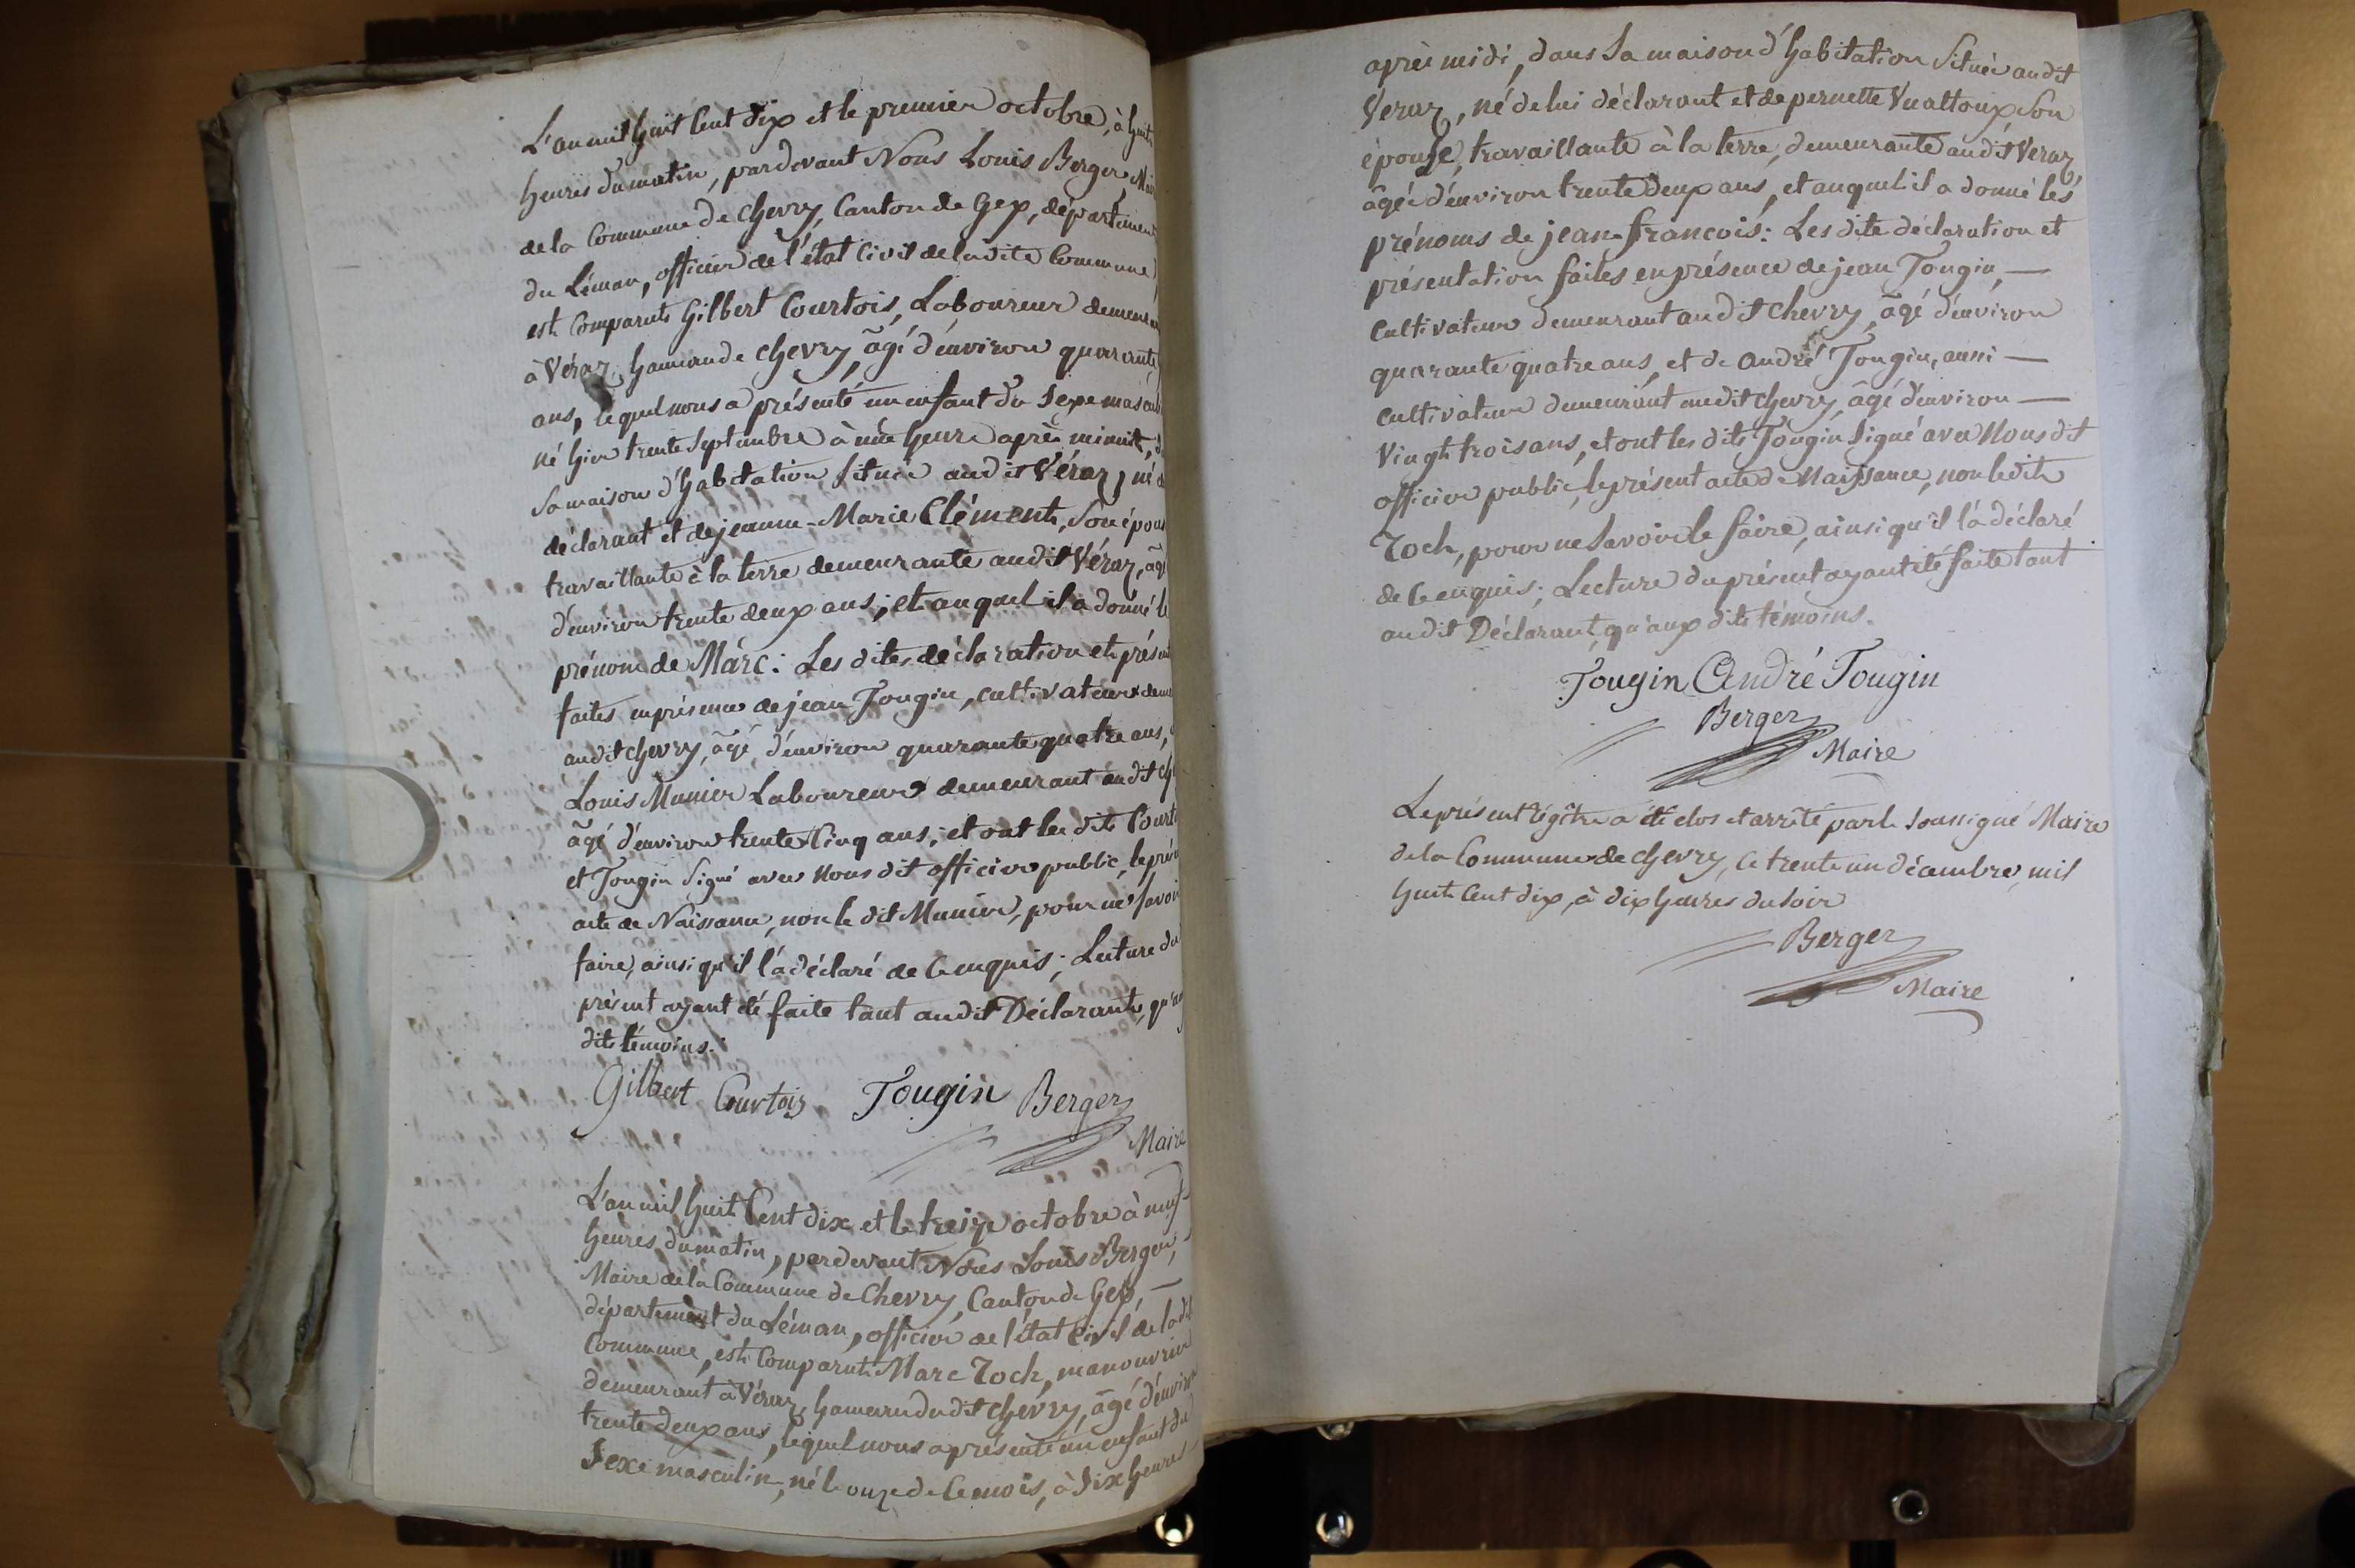 L'an mil huit Cent dix et le premier octobre, à huit
heures du matin, pardevant Nous Louis Berger, Mai
de la Commune de Chevry, Canton de Gex, département
du Léman, officier de l'état Civil de la dite Commune,
est Comparut Gilbert Courtois, Laboureur demeurant
à Véraz, hameau de Chevry, âgé d'environ quarante
ans, lequel nous a présenté un enfant du Sexe masculin
né hier trente Septembre à une heure après minuit, d
sa maison d'habitation Située audit Véraz, né d
déclarant et de jeanne-Marie Clément, Son épouse
travaillante à la terre demeurante audit Véraz, âgé
d'environ trente deux ans; et auquel il a donné le
prénom de Marc: Les dites déclaration et présent
faites en présence de jean Tougin, cultivateur deme
audit Chevry, âgé d'environ quarante quatre ans,
Louis Munier Laboureur demeurant audit Ch
âgé d'environ trente Cinq ans; et ont les dits Court
et Tougin Signé avec Nous dit officier public, le prés
acte de Naissance, non le dit Munier, pour ne Savoir
faire, ainsi qu'il l'a déclaré de Ce enquis; Lecture du
présent ayant été faite tant audit Déclarant, qu'au
dits témoins.
Gilbert Courtois Tougin Berger
Maire
L'an mil huit Cent dix et le treize octobre à neuf
heures du matin, pardevant Nous Louis Berger,
Maire de la Commune de Chevry, Canton de Gex,
département du Léman, officier de l'état Civil de la dit
Commune, est Comparut Marc Roch, manouvrier
demeurant à Véraz, hameau dudit Chevry, âgé d'environ
trente deux ans, lequel nous a présenté un enfant du
Sexe masculin, né le onze de Ce mois, à Six heures
après midi, dans Sa maison d'habitation Située audit
Veraz, né de lui déclarant et de pernette Vualtoux Son
épouse, travaillante à la terre, demeurante audit Veraz,
âgée d'environ trente deux ans, et auquel il a donné les
prénoms de jean-françois: Les dite déclaration et
présentation faites en présence de jean Tougin,
Cultivateur demeurant audit Chevry, âgé d'environ
quarante quatre ans, et de andré Tougin, aussi
cultivateur demeurant audit Chevry, âgé d'environ
Vingt trois ans, et ont les dits Tougin Signé avec Nous dit
officier public, le présent acte de Naissance, non le dit
Roch, pour ne Savoir le faire, ainsi qu'il l'a déclaré
de Ce enquis; Lecture du présent ayant été faite tant
audit Déclarant qu'aux dits témoins.
Tougin André Tougin
Berger
Maire
Le présent régitre a été clos et arrêté par le Soussigné Maire
de la Commune de Chevry, Ce trente un décembre, mil
huit Cent dix, à dix heures du Soir
Berger
Maire